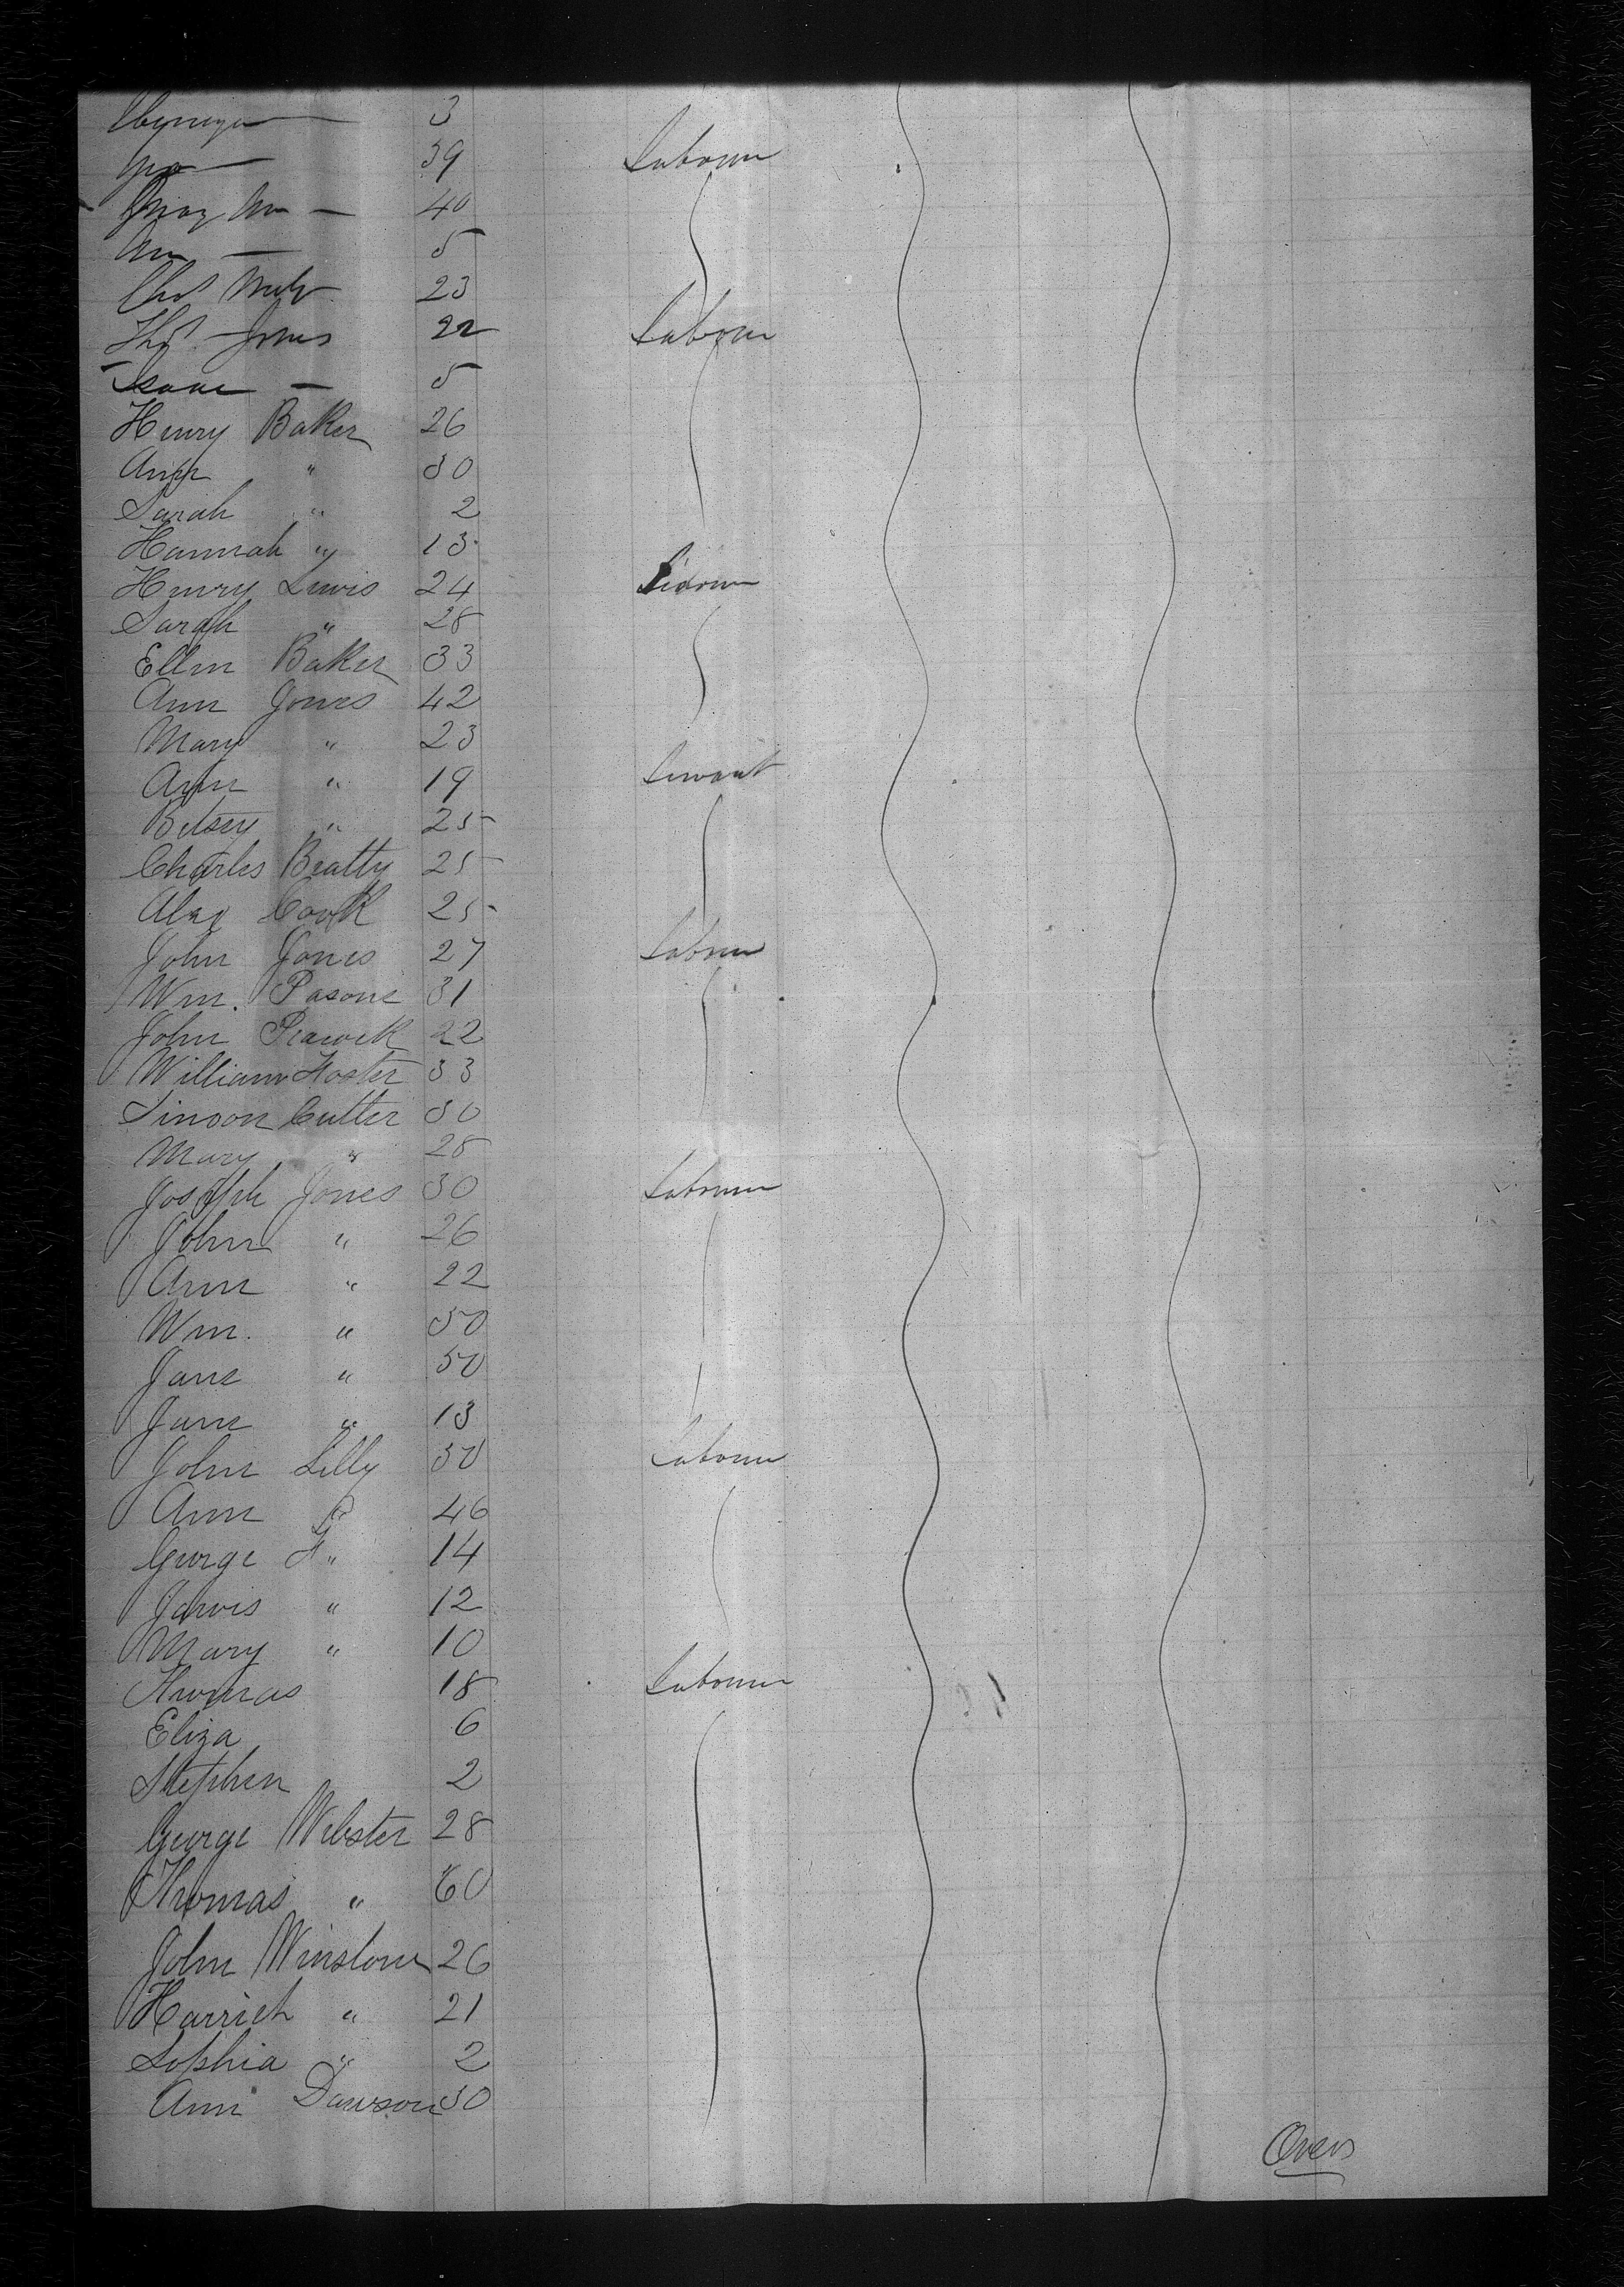 3
39 Labourer
40
Ann — 5
Chas 23
Thos Jones 22 Labourer
Isaac — 5
Henry Baker 26
Ann " 30
Sarah " 2
Hannah " 13
Henry Lewis 24
Sarah " 28
Ellen Baker 33
Ann Jones 42
Mary " 23
Ann " 19 Servant
Betsey " 25
Charles Beatty 25
Alex Cook 25
John Jones 27 Labourer
Wm. Pasons 31
John 22
William Foster 33
Simoon Cutler 30
Mary " 28
Joseph Jones 30 Labourer
John " 26
Ann " 22
Wm. " 50
Jane " 50
Jane " 13
John Lilly 50 Labourer
Ann " 46
George H " 14
Jarvis " 12
Mary " 10
Thomas 18 Labourer
Eliza 6
Stephen 2
George Webster 28
Thomas " 60
John Winslow 26
Harriet " 21
Sophia " 2
Ann Dawson 30
Over